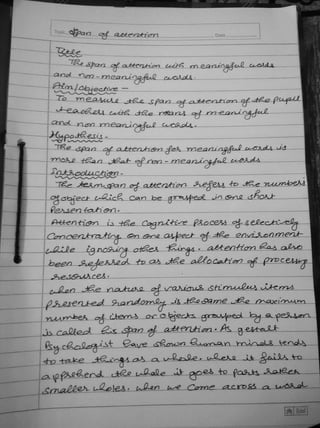 Topic Span of attention Date
Title
The span of attention with meaningful words
and non-meaningful words.
Aim/objective -
To measure the span of attention of the pupil
teachers with the means of meaningful
and non meaningful words.
Hypothesis -
The span of attention for meaningful words is
more than that of non-meaningful words
Introduction -
The term span of attention refers to the numbers
of object which can be grasped in one short
Persentation.
Attention is the Cognitive Process of selectively
Concentrating on one aspect of the environment
while ignoring other things. attention has also
been referred to as the allocation of processing
resources.
when the nature of various stimulus items
presented randomly is the same the maximum
number of items or objects grasped by a person
is called his span of attention. As gestalt
Psychologist have shown human minds tends
to take things as a whole, where is fails to
apprehend the whole it goes to parts rather
smaller wholes. when we come across a word